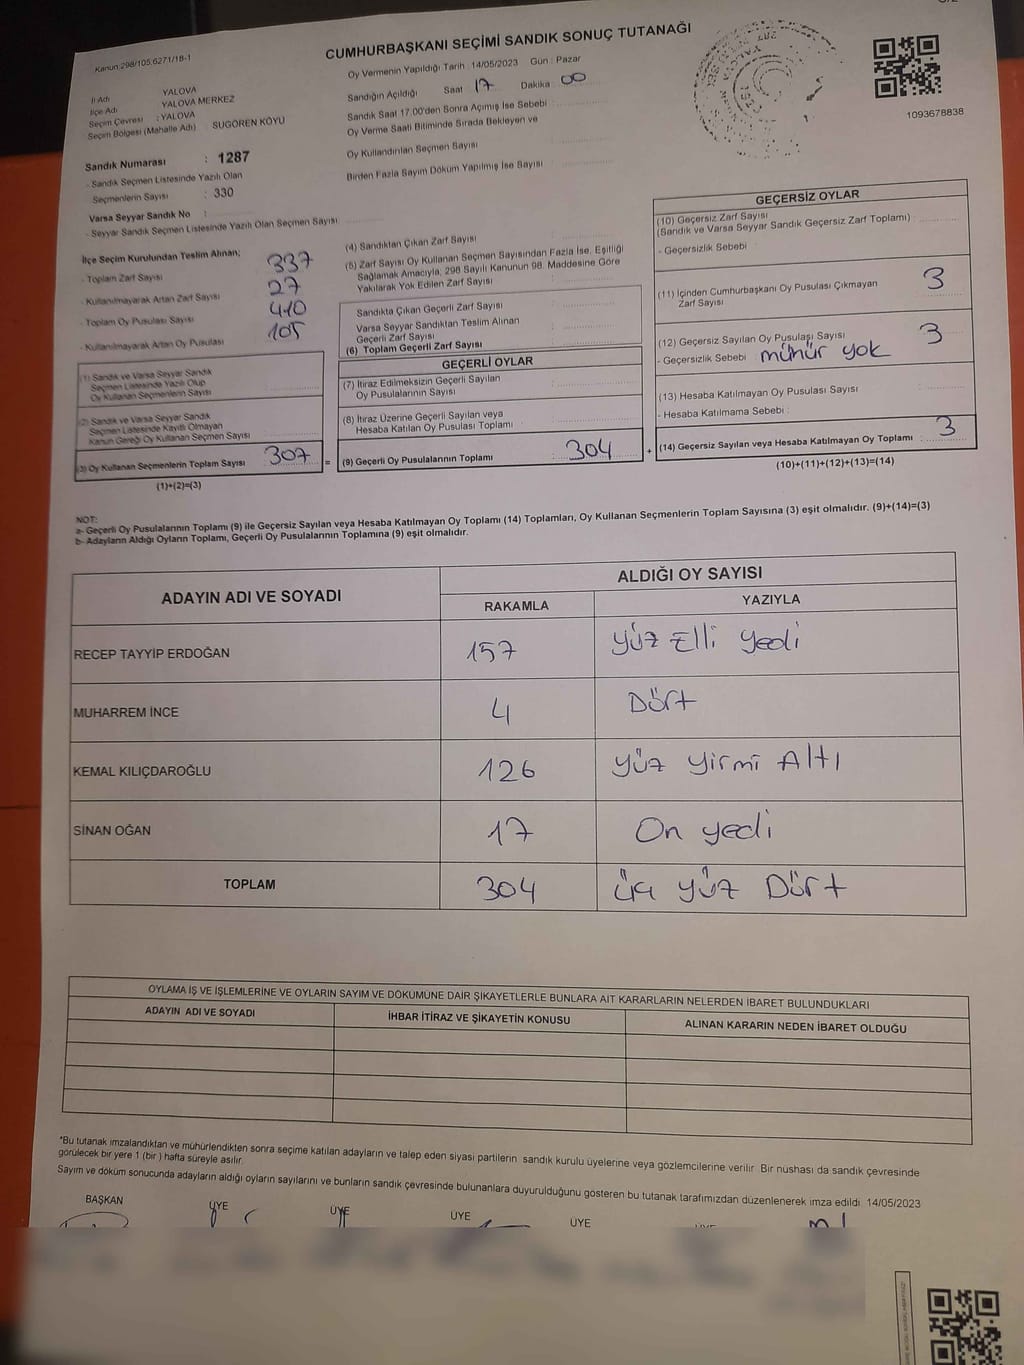 Kanun:298/105,6271/18-1
CUMHURBAŞKANI SEÇİMİ SANDIK SONUÇ TUTANAĞI
Oy Vermenin Yapıldığı Tarih : 14/05/2023 Gün : Pazar
İl Adı YALOVA
İlçe Adı YALOVA MERKEZ
Seçim Çevresi : YALOVA
Seçim Bölgesi (Mahalle Adı) SUGÖREN KÖYÜ
Sandığın Açıldığı Saat 17 Dakika 00
Sandık Saat 17.00'den Sonra Açılmış İse Sebebi :
Oy Verme Saati Bitiminde Sırada Bekleyen ve
Oy Kullandırılan Seçmen Sayısı
Birden Fazla Sayım Döküm Yapılmış İse Sayısı
1093678838
Sandık Numarası : 1287
- Sandık Seçmen Listesinde Yazılı Olan
Seçmenlerin Sayısı : 330
Varsa Seyyar Sandık No :
- Seyyar Sandık Seçmen Listesinde Yazılı Olan Seçmen Sayısı
İlçe Seçim Kurulundan Teslim Alınan;
- Toplam Zarf Sayısı 337
- Kullanılmayarak Artan Zarf Sayısı 27
- Toplam Oy Pusulası Sayısı 410
- Kullanılmayarak Artan Oy Pusulası 105
(1) Sandık ve Varsa Seyyar Sandık
Seçmen Listesinde Yazılı Olup
Oy Kullanan Seçmenlerin Sayısı
(2) Sandık ve Varsa Seyyar Sandık
Seçmen Listesinde Kayıtlı Olmayan
Kanun Gereği Oy Kullanan Seçmen Sayısı
(3) Oy Kullanan Seçmenlerin Toplam Sayısı 307 =
(1)+(2)=(3)
(4) Sandıktan Çıkan Zarf Sayısı :
(5) Zarf Sayısı Oy Kullanan Seçmen Sayısından Fazla İse, Eşitliği
Sağlamak Amacıyla, 298 Sayılı Kanunun 98. Maddesine Göre
Yakılarak Yok Edilen Zarf Sayısı :
Sandıkta Çıkan Geçerli Zarf Sayısı :
Varsa Seyyar Sandıktan Teslim Alınan
Geçerli Zarf Sayısı :
(6) Toplam Geçerli Zarf Sayısı :
GEÇERLİ OYLAR
(7) İtiraz Edilmeksizin Geçerli Sayılan
Oy Pusulalarının Sayısı :
(8) İtiraz Üzerine Geçerli Sayılan veya
Hesaba Katılan Oy Pusulası Toplamı :
(9) Geçerli Oy Pusulalarının Toplamı : 304 +
GEÇERSİZ OYLAR
(10) Geçersiz Zarf Sayısı
(Sandık ve Varsa Seyyar Sandık Geçersiz Zarf Toplamı) :
- Geçersizlik Sebebi :
(11) İçinden Cumhurbaşkanı Oy Pusulası Çıkmayan
Zarf Sayısı 3
(12) Geçersiz Sayılan Oy Pusulası Sayısı 3
- Geçersizlik Sebebi : mühür yok
(13) Hesaba Katılmayan Oy Pusulası Sayısı :
- Hesaba Katılmama Sebebi :
(14) Geçersiz Sayılan veya Hesaba Katılmayan Oy Toplamı : 3
(10)+(11)+(12)+(13)=(14)
NOT:
a- Geçerli Oy Pusulalarının Toplamı (9) ile Geçersiz Sayılan veya Hesaba Katılmayan Oy Toplamı (14) Toplamları, Oy Kullanan Seçmenlerin Toplam Sayısına (3) eşit olmalıdır. (9)+(14)=(3)
b- Adayların Aldığı Oyların Toplamı, Geçerli Oy Pusulalarının Toplamına (9) eşit olmalıdır.
ADAYIN ADI VE SOYADI ALDIĞI OY SAYISI
RAKAMLA YAZIYLA
RECEP TAYYİP ERDOĞAN 157 Yüz Elli yedi
MUHARREM İNCE 4 Dört
KEMAL KILIÇDAROĞLU 126 yüz yirmi Altı
SİNAN OĞAN 17 On yedi
TOPLAM 304 üç yüz Dört
OYLAMA İŞ VE İŞLEMLERİNE VE OYLARIN SAYIM VE DÖKÜMÜNE DAİR ŞİKAYETLERLE BUNLARA AİT KARARLARIN NELERDEN İBARET BULUNDUKLARI
ADAYIN ADI VE SOYADI İHBAR İTİRAZ VE ŞİKAYETİN KONUSU ALINAN KARARIN NEDEN İBARET OLDUĞU
*Bu tutanak imzalandıktan ve mühürlendikten sonra seçime katılan adayların ve talep eden siyasi partilerin sandık kurulu üyelerine veya gözlemcilerine verilir. Bir nüshası da sandık çevresinde
görülecek bir yere 1 (bir) hafta süreyle asılır.
Sayım ve döküm sonucunda adayların aldığı oyların sayılarını ve bunların sandık çevresinde bulunanlara duyurulduğunu gösteren bu tutanak tarafımızdan düzenlenerek imza edildi. 14/05/2023
BAŞKAN ÜYE ÜYE ÜYE ÜYE